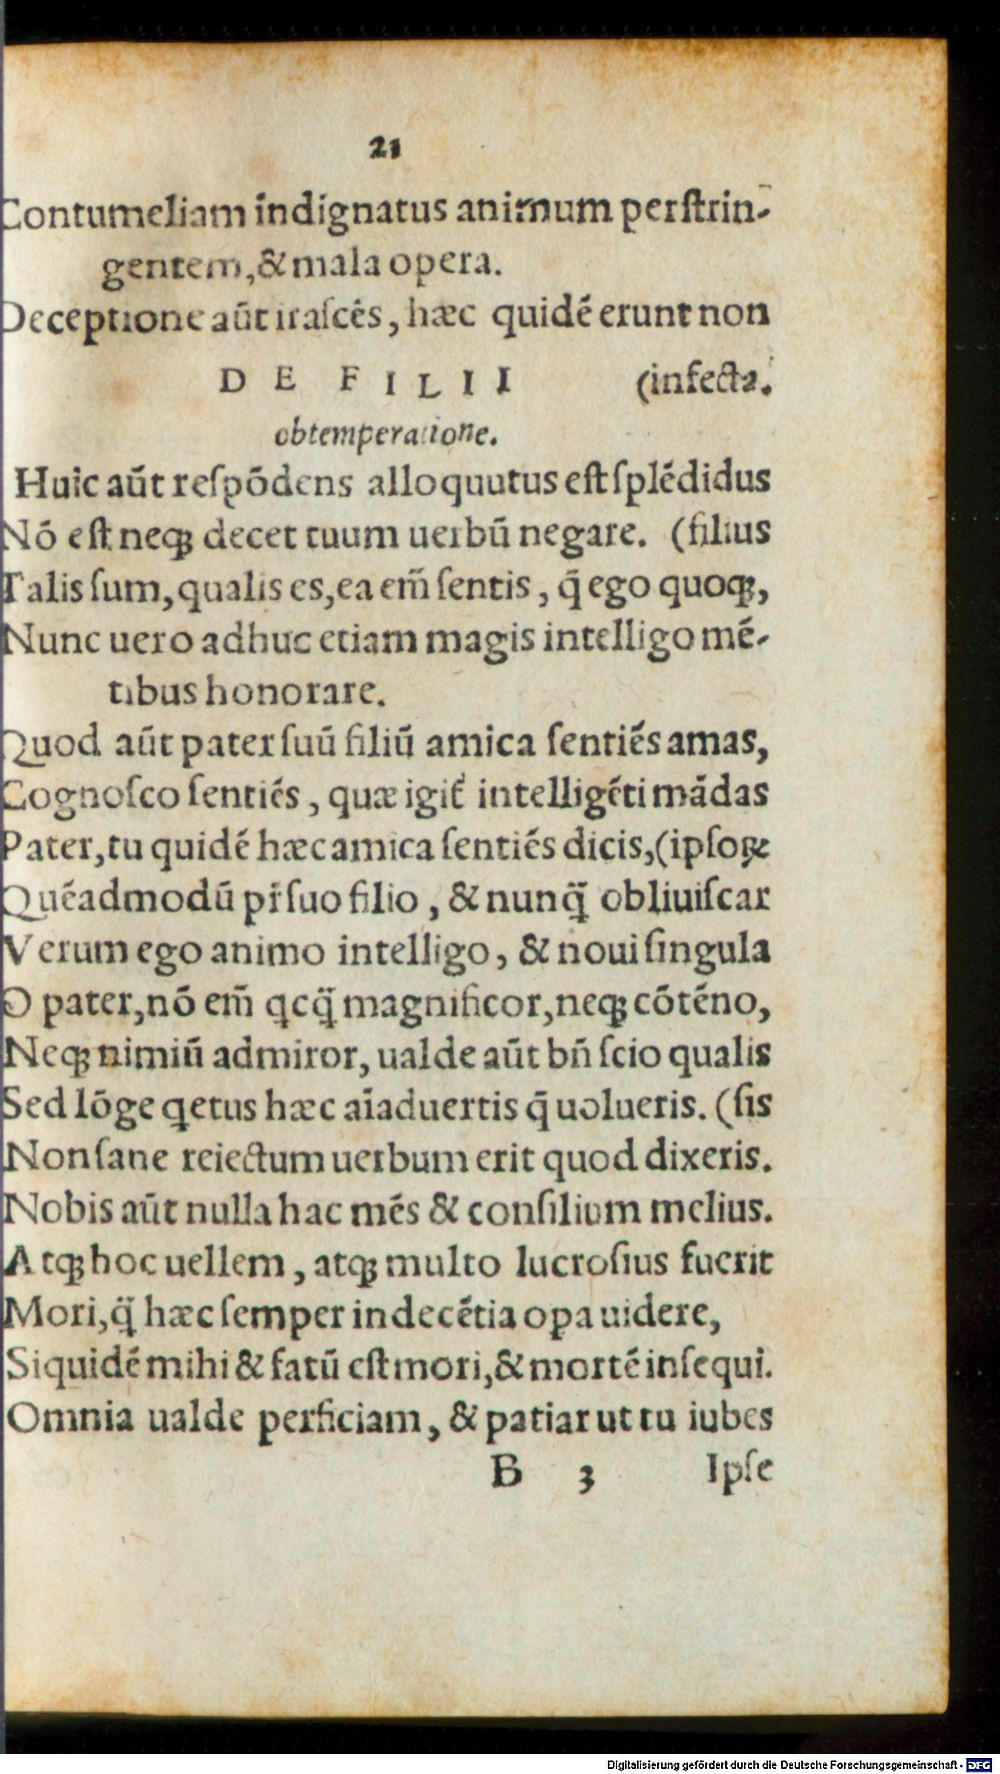 21
Contumeliam indignatus animum perstrin-
gentem, & mala opera.
Deceptione aūt irascēs, hæc quidē erunt non
DE FILII (infecta.
obtemperatione.
Huic aūt respōdens alloquutus est splēdidus
Nō est neqꝫ decet tuum uerbū negare. (filius
Talis sum, qualis es, ea em̄ sentis, q̄ ego quoqꝫ,
Nunc uero adhuc etiam magis intelligo mē-
tibus honorare.
Quod aūt pater suū filiū amica sentiēs amas,
Cognosco sentiēs, quæ igit᷑ intelligēti mādas
Pater, tu quidē hæc amica sentiēs dicis, (ipsoꝝ
Quēadmodū pr̄ suo filio, & nunq̄̈ obliuiscar
Verum ego animo intelligo, & noui singula
O pater, nō em̄ qcq̄̈ magnificor, neqꝫ cōtēno,
Neqꝫ nimiū admiror, ualde aūt bn̄ scio qualis
Sed lōge qetus hæc aīaduertis q̄ uolueris. (sis
Non sane reiectum uerbum erit quod dixeris.
Nobis aūt nulla hac mēs & consilium melius.
Atqꝫ hoc uellem, atqꝫ multo lucrosius fuerit
Mori, q̄̈ hæc semper indecētia opa uidere,
Siquidē mihi & fatū est mori, & mortē insequi.
Omnia ualde perficiam, & patiar ut tu iubes
B 3 Ipse
Digitalisierung gefördert durch die Deutsche Forschungsgemeinschaft - DFG